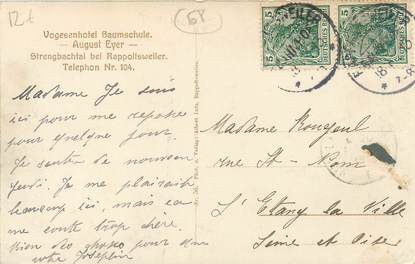 12t
68
Vogesenhotel Baumschule.
— August Eyer —
Strengbachtal bei Rappoltsweiler.
Telephon Nr. 104.
5
5
Madame Je suis
ici pour me reposer
pour quelque jours
Je rentre de nouveau
jeudi. Je me plaisais
beaucoup ici, mais ça
me coute trop chère.
Rien de pour
votre Joséphine
Madame
rue St-Nom
L'Etang la Ville
Seine et Oise